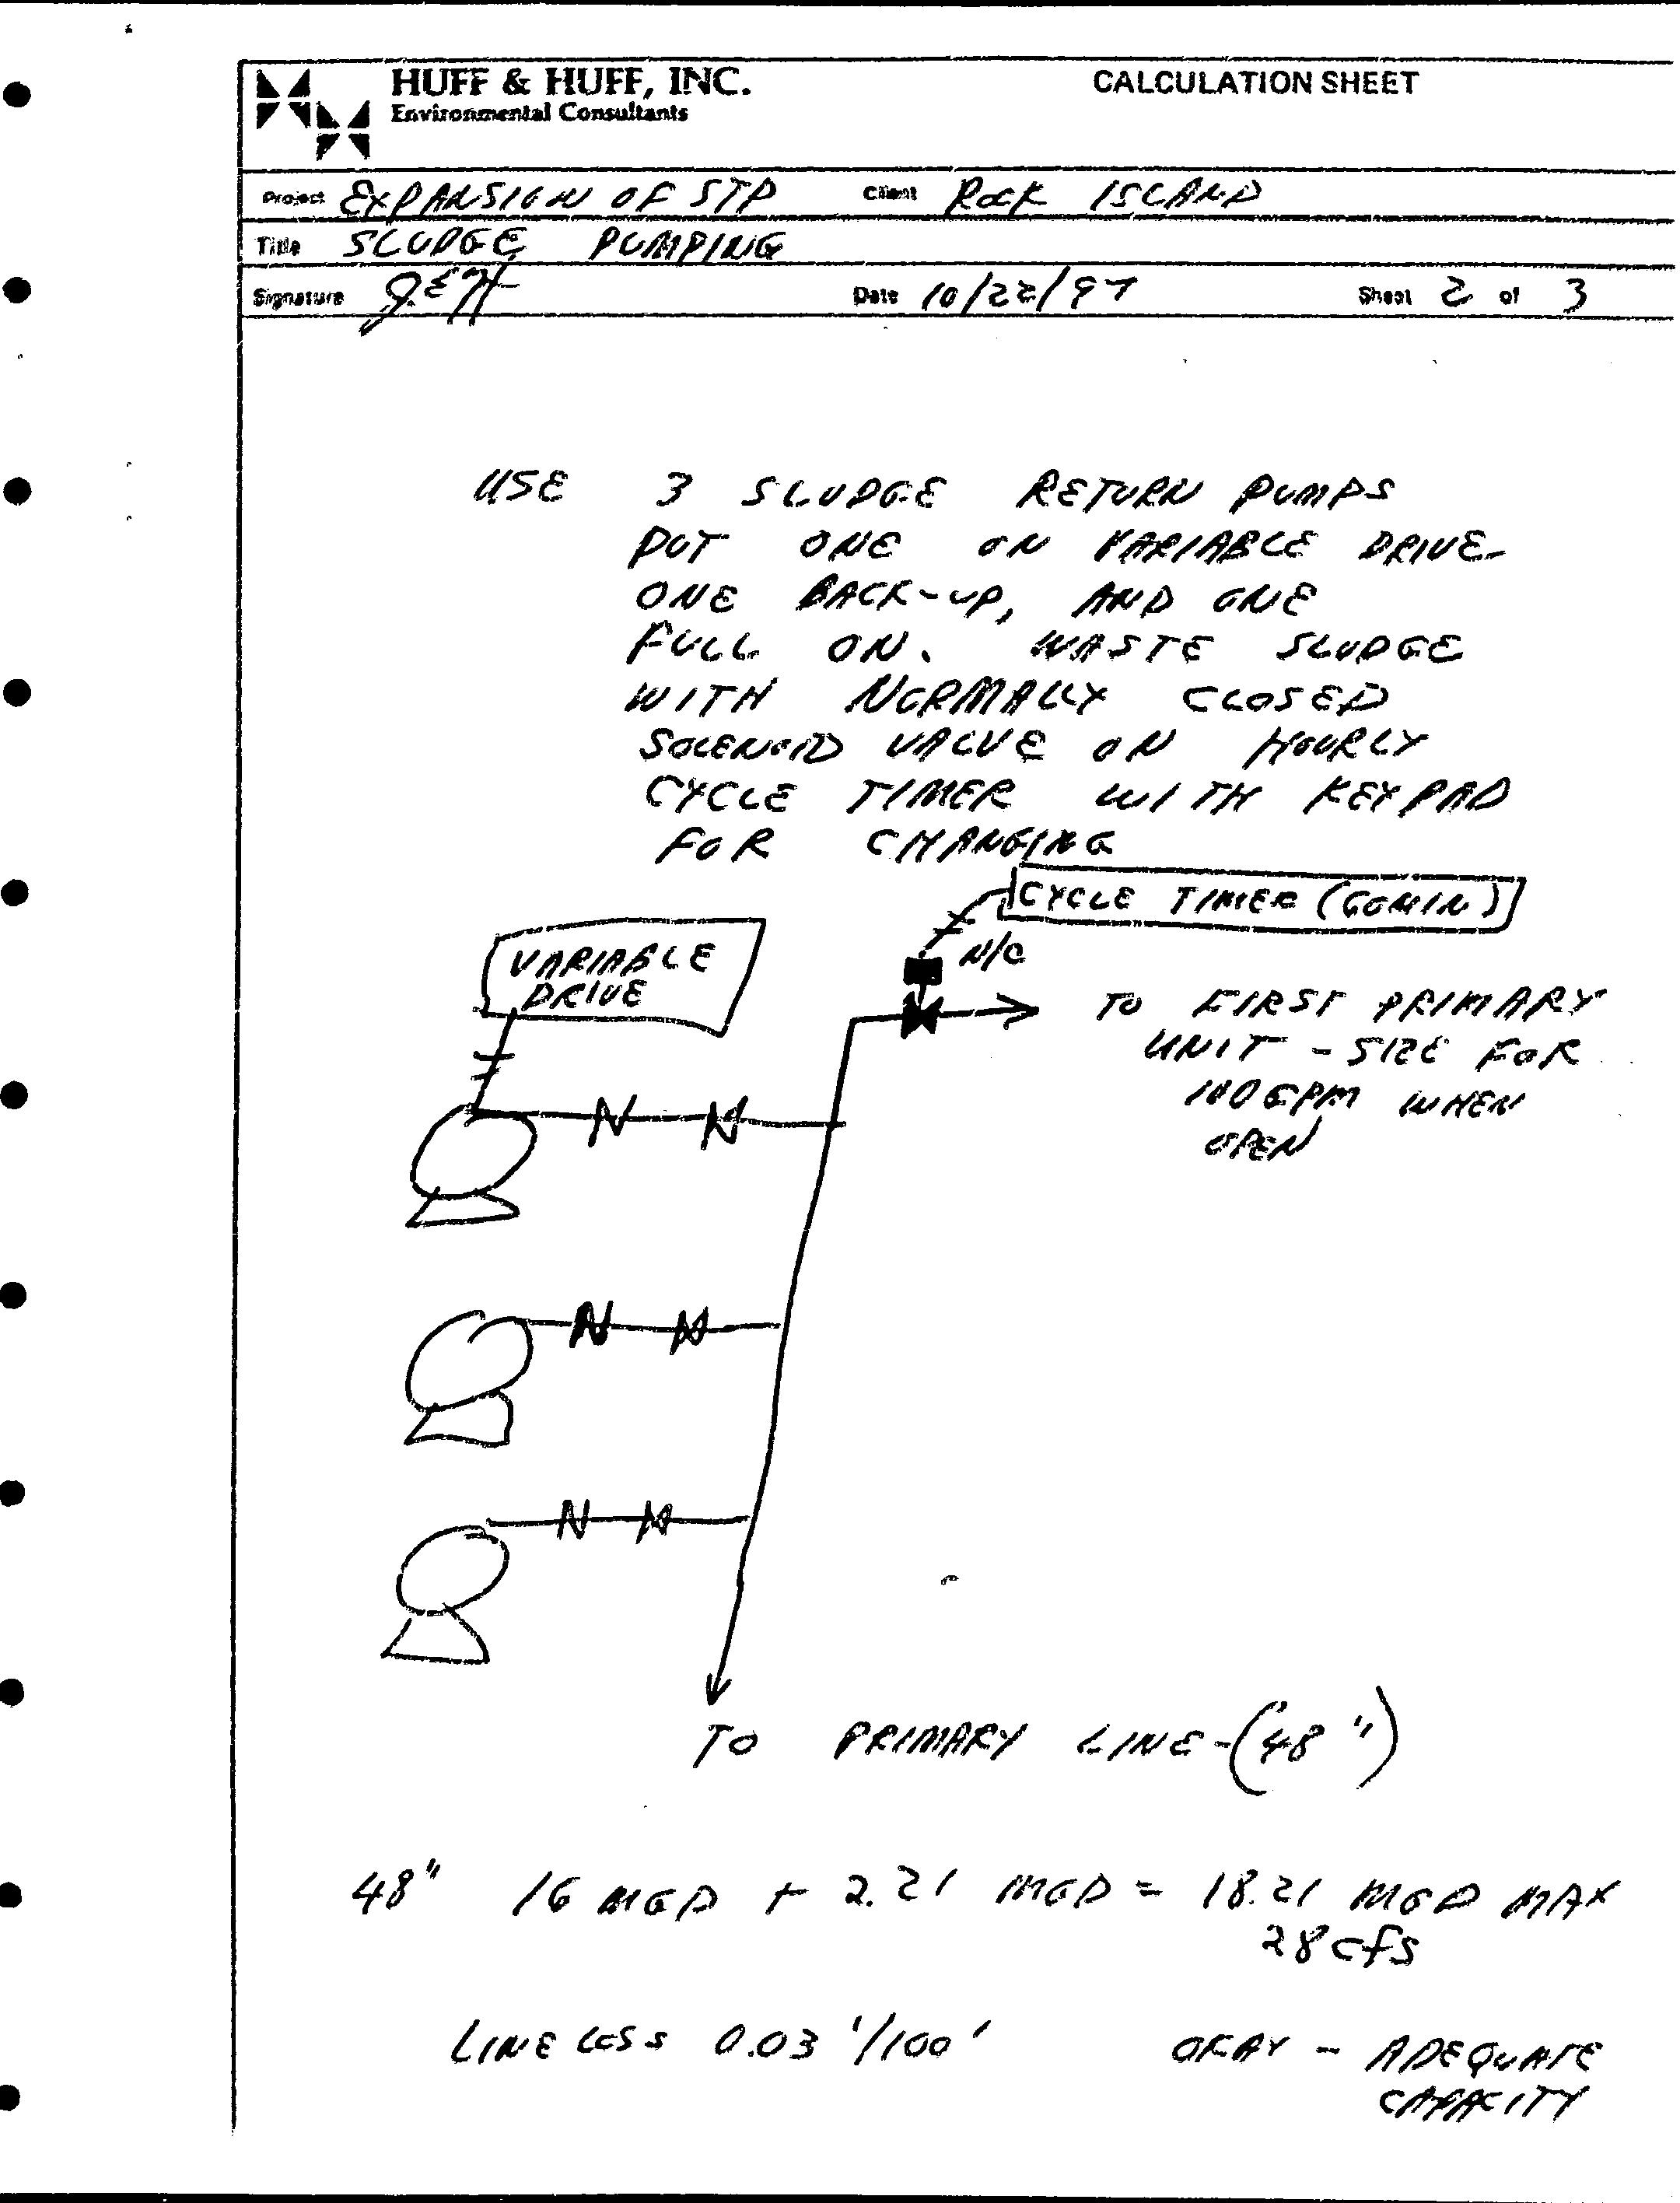 HUFF & HUFF, INC.
Environmental Consultants
CALCULATION SHEET
Project EXPANSION OF STP Client ROCK ISLAND
Title SLUDGE PUMPING
Signature Date 10/22/97 Sheet 2 of 3
USE 3 SLUDGE RETURN PUMPS
PUT ONE ON VARIABLE DRIVE
ONE BACK-UP, AND ONE
FULL ON. WASTE SLUDGE
WITH NORMALLY CLOSED
SOLENOID VALVE ON HOURLY
CYCLE TIMER WITH KEYPAD
FOR CHANGING
CYCLE TIMER (60MIN)
N/C
VARIABLE
DRIVE
TO FIRST PRIMARY
UNIT - SIZE FOR
100 GPM WHEN
OPEN
TO PRIMARY LINE - (48")
48" 16 MGD + 2.21 MGD = 18.21 MGD MAX
28 cfs
LINE LOSS 0.03 '/100' OKAY - ADEQUATE
CAPACITY